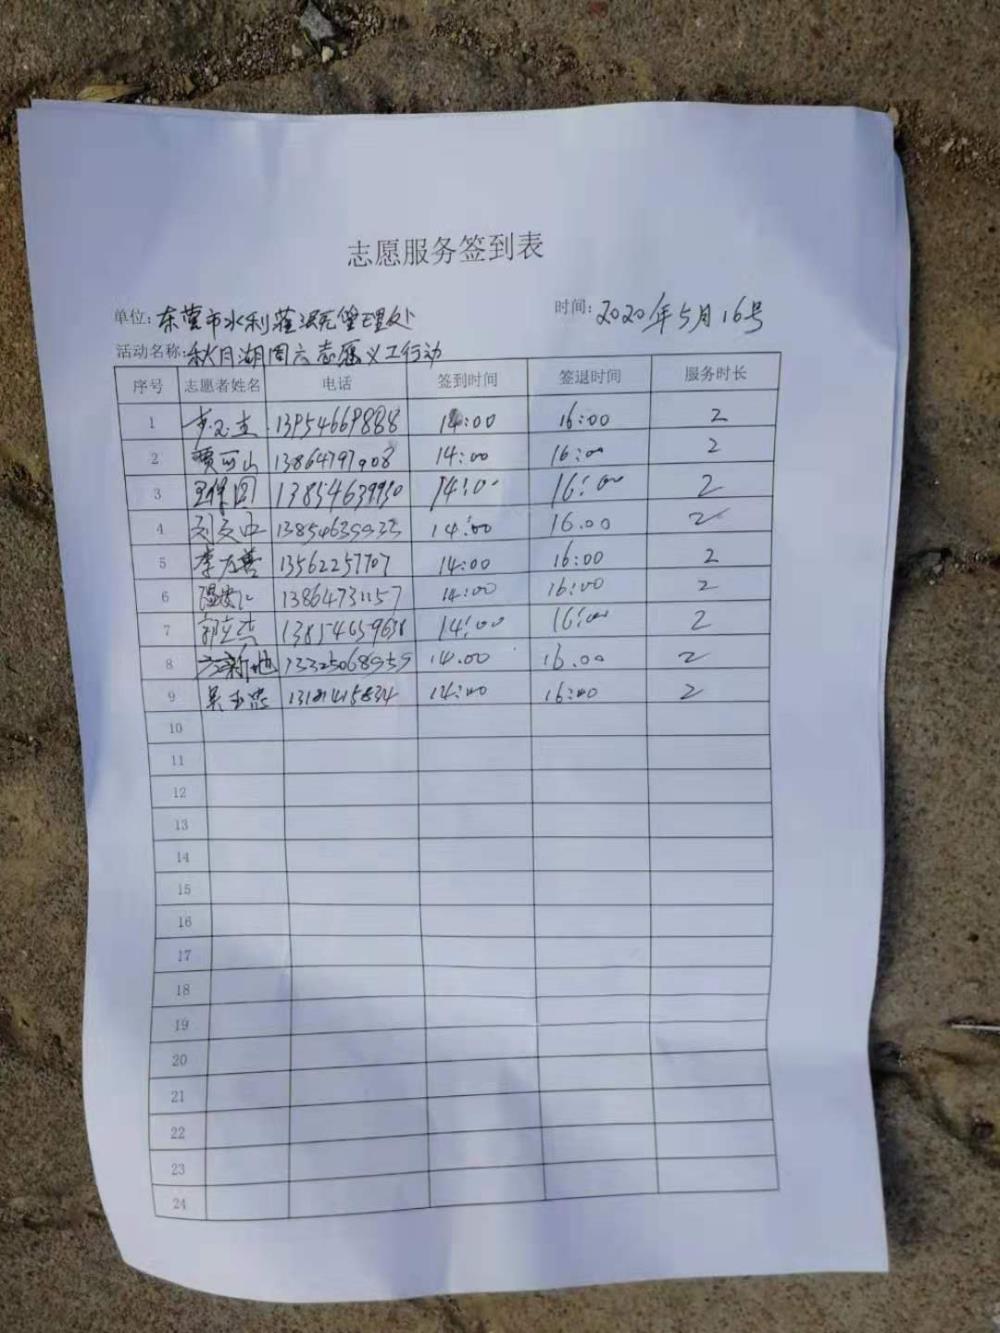 志愿服务签到表
单位:东营市水利灌溉管理处 时间:2020年5月16号
活动名称:秋月湖周六志愿义工行动
序号 志愿者姓名 电话 签到时间 签退时间 服务时长
1 13954669888 14:00 16:00 2
2 贾西山 13864797908 14:00 16:00 2
3 13854639930 14:00 16:00 2
4 14:00 16.00 2
5 13562257707 14:00 16:00 2
6 13864731157 14:00 16:00 2
7 郭立杰 13854659638 14:00 16:00 2
8 14.00 16.00 2
9 吴玉忠 14:00 16:00 2
10
11
12
13
14
15
16
17
18
19
20
21
22
23
24